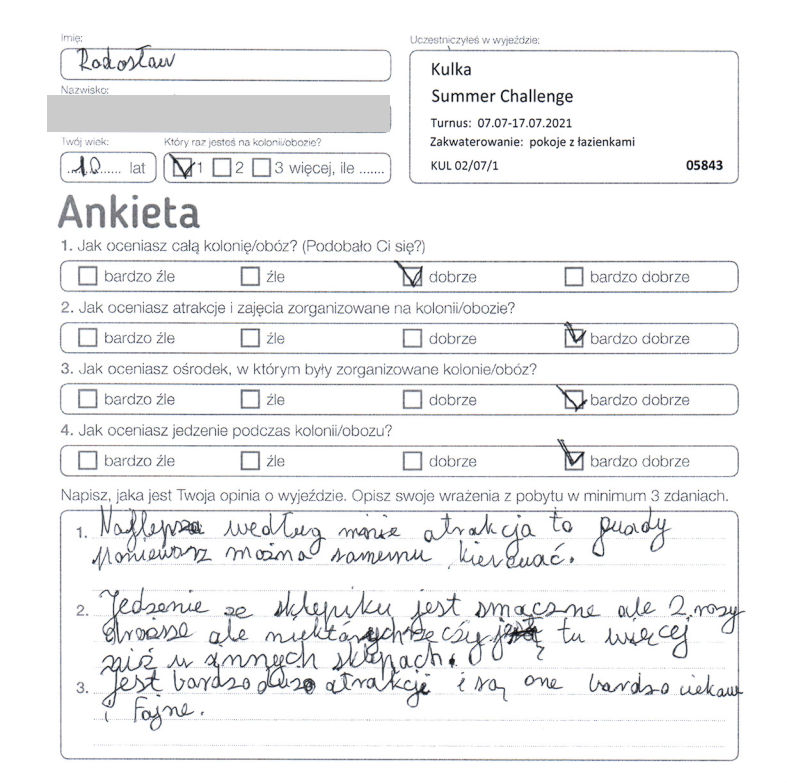 Imię:
Radosław
Nazwisko:
Twój wiek:
10 lat
Który raz jesteś na kolonii/obozie?
1 2 3 więcej, ile .......
Uczestniczyłeś w wyjeździe:
Kulka
Summer Challenge
Turnus: 07.07-17.07.2021
Zakwaterowanie: pokoje z łazienkami
KUL 02/07/1 05843
Ankieta
1. Jak oceniasz całą kolonię/obóz? (Podobało Ci się?)
bardzo źle źle dobrze bardzo dobrze
2. Jak oceniasz atrakcje i zajęcia zorganizowane na kolonii/obozie?
bardzo źle źle dobrze bardzo dobrze
3. Jak oceniasz ośrodek, w którym były zorganizowane kolonie/obóz?
bardzo źle źle dobrze bardzo dobrze
4. Jak oceniasz jedzenie podczas kolonii/obozu?
bardzo źle źle dobrze bardzo dobrze
Napisz, jaka jest Twoja opinia o wyjeździe. Opisz swoje wrażenia z pobytu w minimum 3 zdaniach.
1. Najlepsza według mnie atrakcja to quady
poniewarz można samemu kierować.
2. Jedzenie ze sklepiku jest smaczne ale 2 razy
droższe ale niektórych rzeczy są tu więcej
niż w innych sklepach.
3. Jest bardzo dużo atrakcji i są one bardzo ciekawe
i fajne.